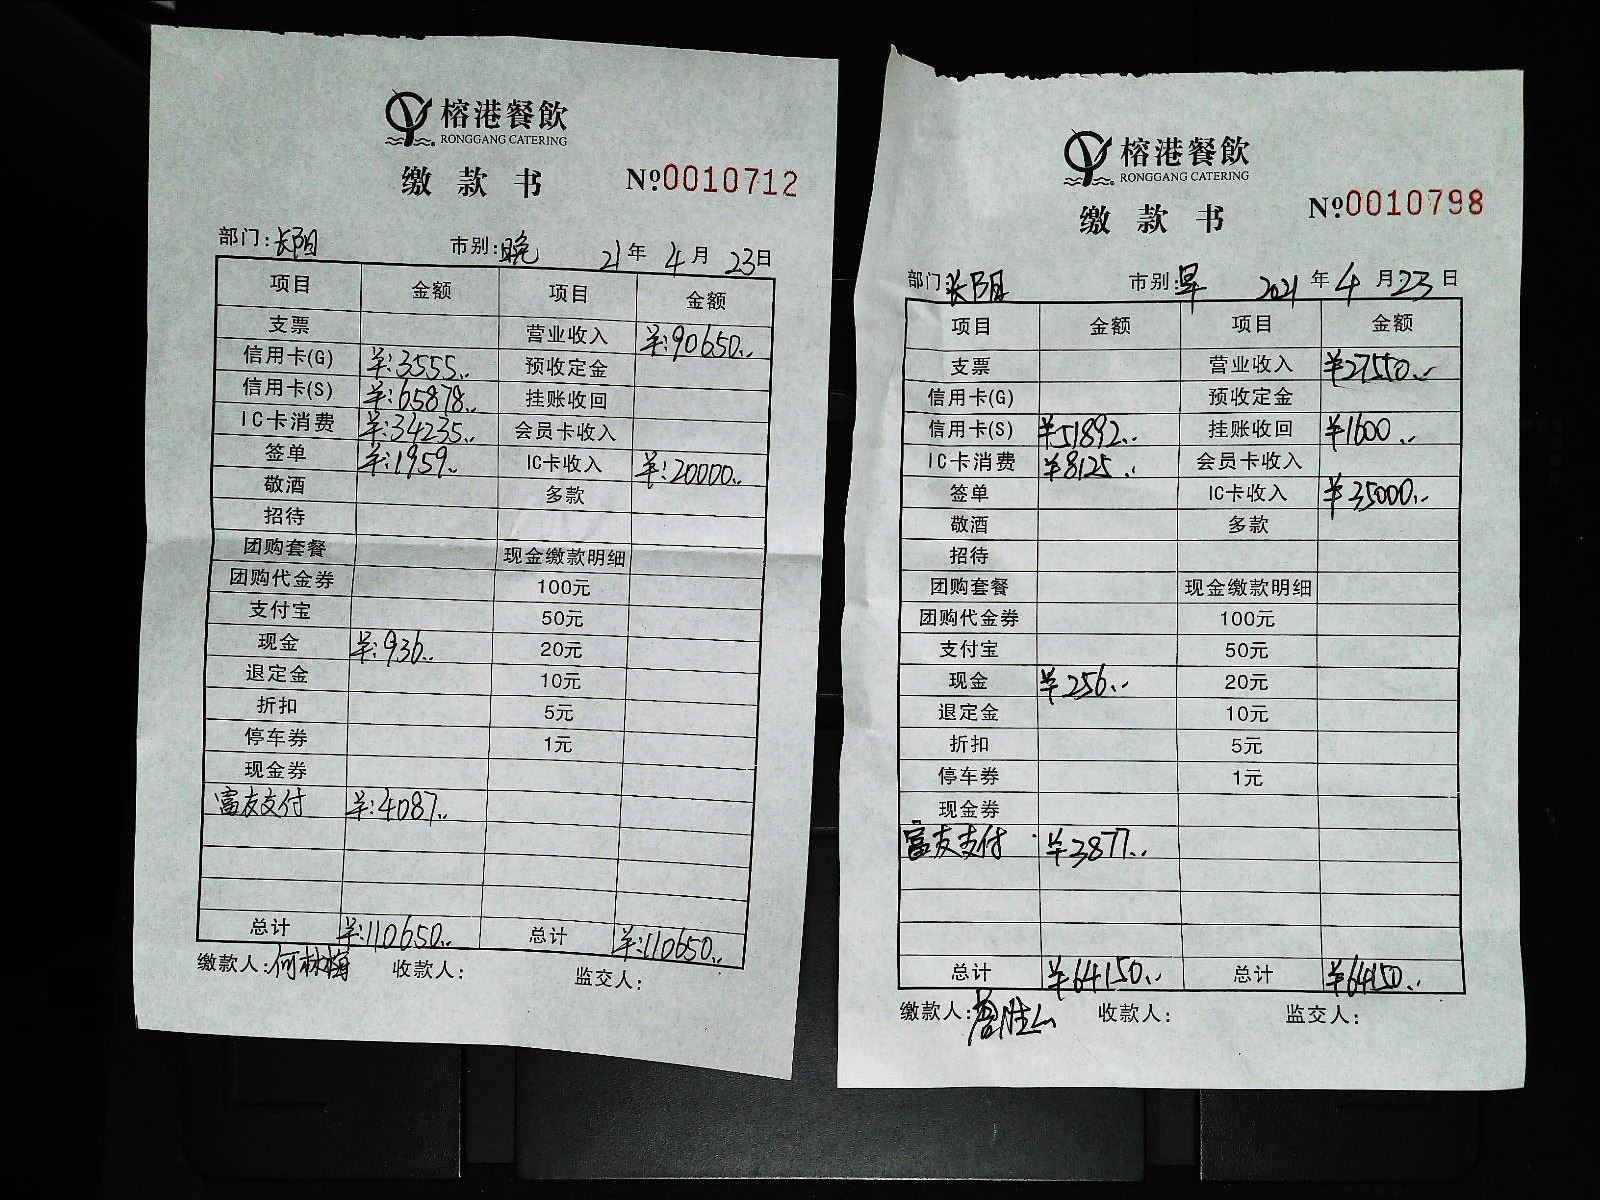 榕港餐飲
RONGGANG CATERING
缴款书 №0010712
部门:长阳 市别:晚 21年4月23日
项目 金额 项目 金额
支票 营业收入 ¥:90650..
信用卡(G) ¥:3555.. 预收定金
信用卡(S) ¥:65878.. 挂账收回
IC卡消费 ¥:34235.. 会员卡收入
签单 ¥:1959.. IC卡收入 ¥:20000..
敬酒 多款
招待
团购套餐 现金缴款明细
团购代金券 100元
支付宝 50元
现金 ¥:936.. 20元
退定金 10元
折扣 5元
停车券 1元
现金券
富友支付 ¥:4087..
总计 ¥:110650.. 总计 ¥:110650..
缴款人:何林梅 收款人: 监交人:
榕港餐飲
RONGGANG CATERING
缴款书 №0010798
部门:长阳 市别:早 2021年4月23日
项目 金额 项目 金额
支票 营业收入 ¥27550..
信用卡(G) 预收定金
信用卡(S) ¥51892.. 挂账收回 ¥1600..
IC卡消费 ¥8125.. 会员卡收入
签单 IC卡收入 ¥35000..
敬酒 多款
招待
团购套餐 现金缴款明细
团购代金券 100元
支付宝 50元
现金 ¥256.. 20元
退定金 10元
折扣 5元
停车券 1元
现金券
富友支付 ¥3877..
总计 ¥64150.. 总计 ¥64150..
缴款人: 收款人: 监交人: